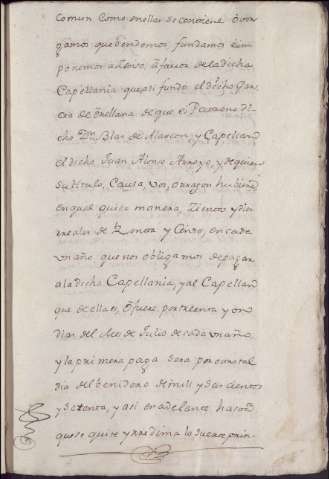 comun como en ellas se contiene otor
gamos que bendemos fundamos e im
ponemos a censo, a favor de la dicha
Capellania que assi fundo el dicho
de Orellana de que es Patrono Di
cho Dn. Blas de Alarcon, y Capellan
el dicho Juan Alonso Arroyo, y de quien
su titulo, Causa, vos, o rrason hubiere
en qual quier manera, Zientos y dies
rreales de Renta y Censo, en cada
un año que nos obligamos de pagar
a la dicha Capellania, y al Capellan
que de ella es, o fuere, por treinta y un
dias del Mes de Julio de cada un año,
y la primera paga sera por otro tal
dia del benidero de mill y Seis cientos
y Setenta, y asi en adelante hasta
que se quite y rredima la Suerte prin-